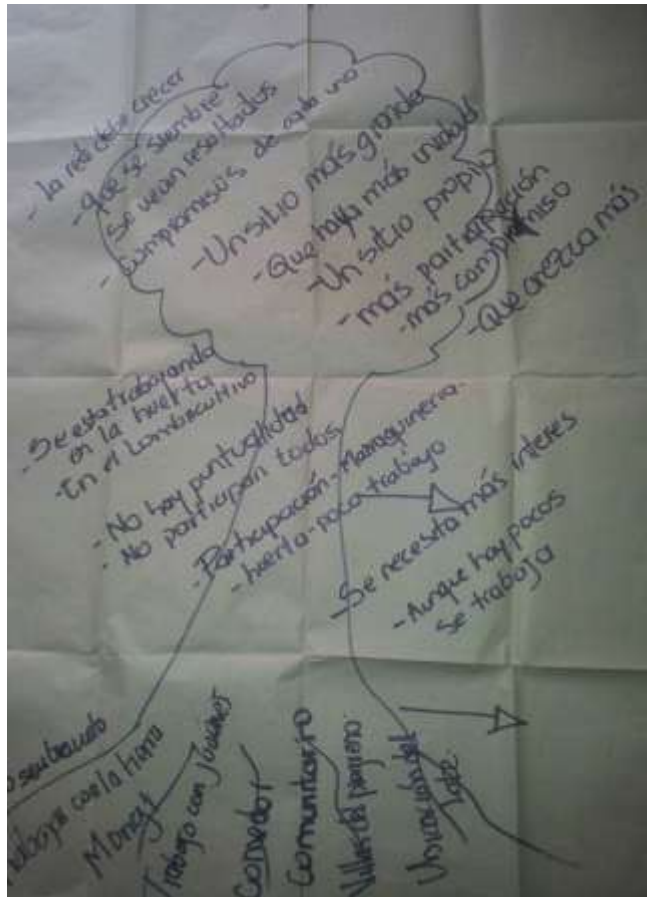 - La red debe crecer
- que se siembre
se vean resultados
- compromisos de cada uno
- Un sitio más grande
- Que haya más unidad
- Un sitio propio
- más participación
- más compromiso
- Que crezca más
- Se esta trabajando
en la huerta
- En el Lombricultivo
- No hay puntualidad
- No participan todos
- Participación - Maraquineria
- huerta - poco trabajo
- Se necesita más interes
- Aunque hay pocos
se trabaja
sembrando
con la tierra
Money
Trabajo con jovenes
Comedor
Comunitario
Villas del progreso
Ubicación del
Lote